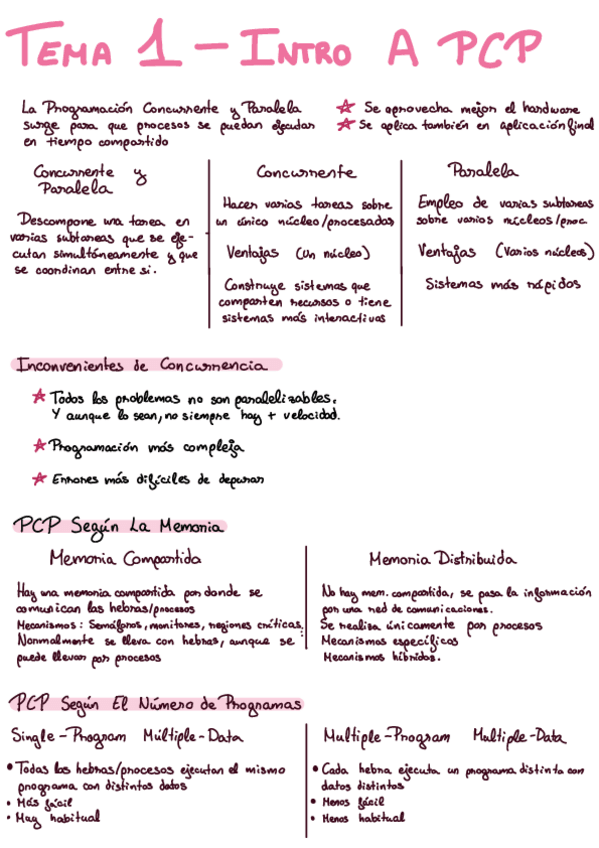 TEMA 1 - INTRO A PCP
La Programación Concurrente y Paralela
surge para que procesos se puedan ejecutar
en tiempo compartido
Se aprovecha mejor el hardware
Se aplica también en aplicación final
Concurrente y
Paralela
Descompone una tarea en
varias subtareas que se eje-
cutan simultáneamente y que
se coordinan entre si.
Concurrente
Hacer varias tareas sobre
un único núcleo/procesador
Ventajas (Un núcleo)
Construye sistemas que
comparten recursos o tiene
sistemas más interactivos
Paralela
Empleo de varias subtareas
sobre varios núcleos/proc.
Ventajas (Varios núcleos)
Sistemas más rápidos
Inconvenientes de Concurrencia
Todos los problemas no son paralelizables.
Y aunque lo sean, no siempre hay + velocidad.
Programación más compleja
Errores más difíciles de depurar
PCP Según La Memoria
Memoria Compartida
Hay una memoria compartida por donde se
comunican las hebras/procesos
Mecanismos: Semáforos, monitores, regiones críticas.
Normalmente se lleva con hebras, aunque se
puede llevar por procesos
Memoria Distribuida
No hay mem. compartida, se pasa la información
por una red de comunicaciones.
Se realiza únicamente por procesos
Mecanismos específicos
Mecanismos híbridos.
PCP Según El Número de Programas
Single-Program Múltiple-Data
• Todas las hebras/procesos ejecutan el mismo
programa con distintos datos
• Más fácil
• May habitual
Multiple-Program Multiple-Data
• Cada hebra ejecuta un programa distinto con
datos distintos
• Menos fácil
• Menos habitual